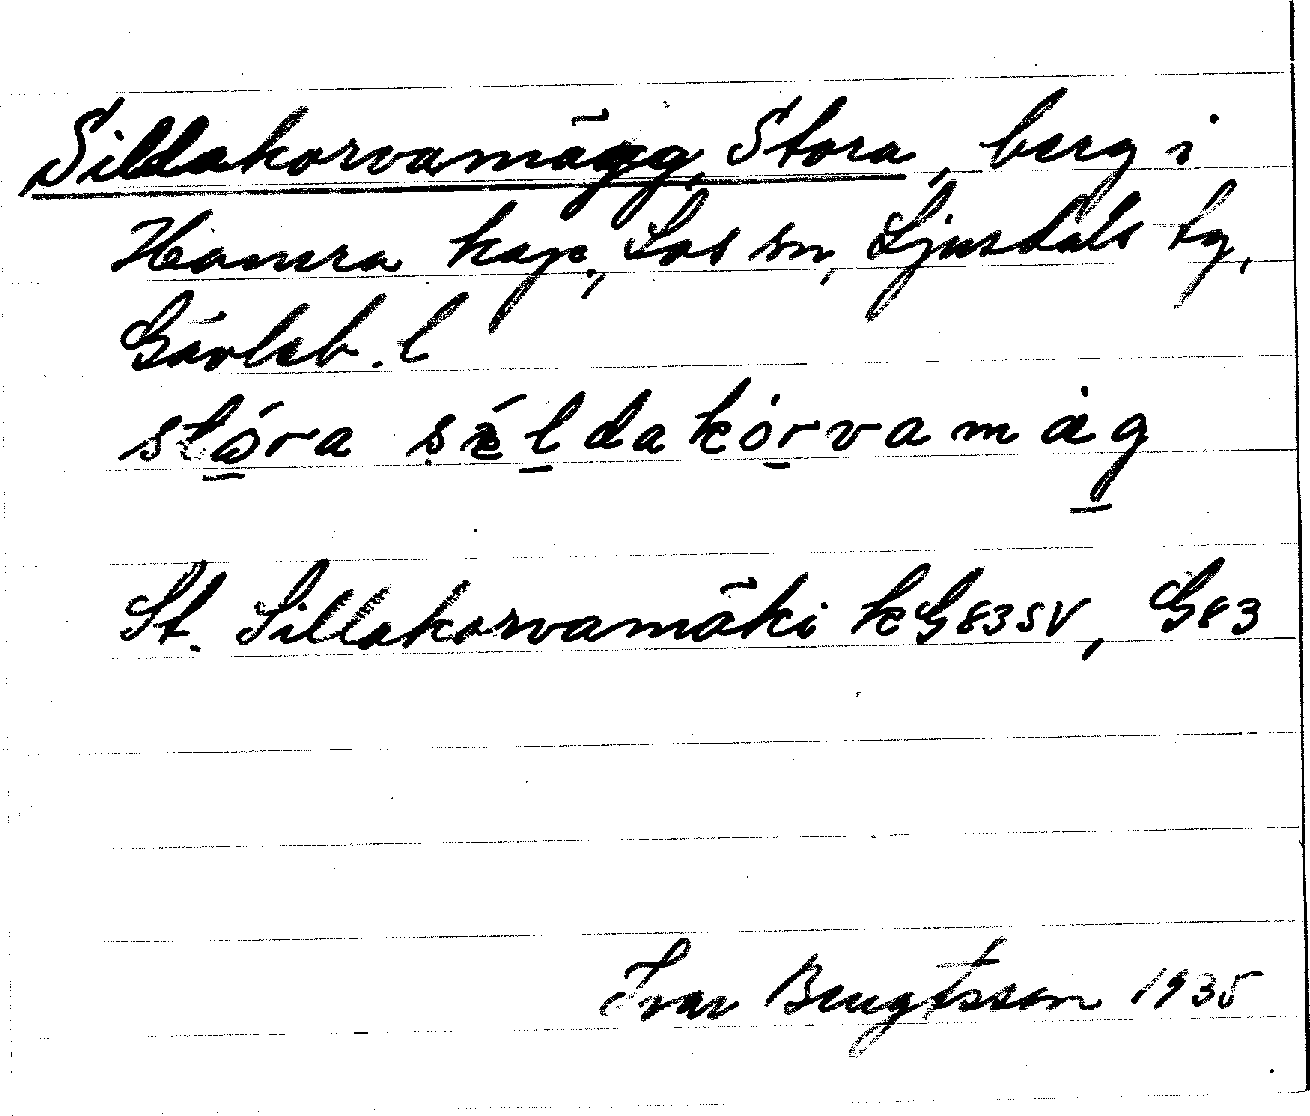 Silldakorvamägg, Stora, berg i
Hamra kap., Los sn, Ljusdals tg,
Gävleb. l
stóra séldakòrvamàg
St. Sillakorvamäki kG83SV, G83
Ivar Bengtsson 1935